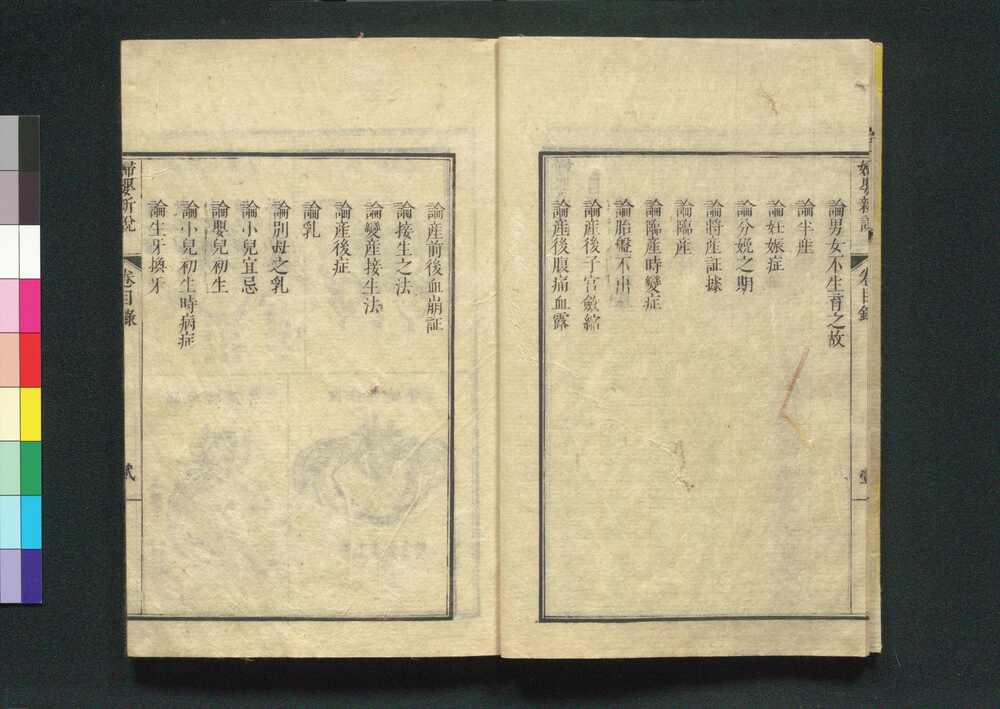 婦嬰新說
卷目錄
壹
論男女不生育之故
論半產
論妊娠症
論分娩之期
論將產証據
論臨產
論臨產時變症
論胎盤不出
論產後子宮斂縮
論產後腹痛血露
論產前後血崩証
論接生之法
論變產接生法
論產後症
論乳
論別母之乳
論小兒宜忌
論嬰兒初生
論小兒初生時病症
論生牙換牙
婦嬰新說
卷目錄
貳